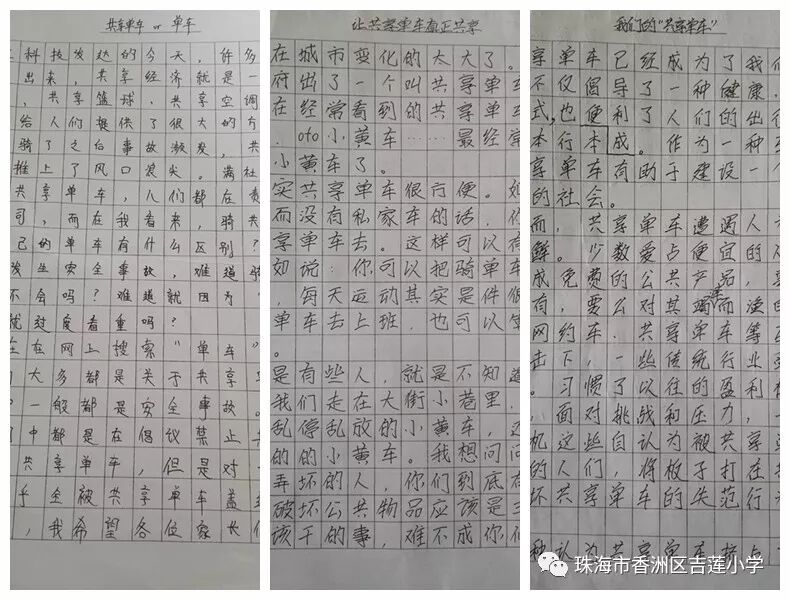 共享单车 or 单车
科技发达的今天，许多
出来，共享经济就是一
，共享篮球，共享空调
给人们提供了很大的方
骑了之后事故频发，共
推上了风口浪尖。满社
共享单车，人们都在责
司，而在我看来，骑共
己的单车有什么区别？
发生安全事故，难道骑
不会吗？难道就因为“
就过度看重吗？
在在网上搜索“单车”
大多都是关于共享
一般都是安全事故。
中都是在倡议禁止共
共享单车，但是对一
乎全被共享单车盖
，我希望各位家长们
让共享单车真正共享
在城市变化的太大了。
府出了一个叫共享单车
在经常看到的共享单车
，oto小黄车……最经常
小黄车了。
实共享单车很方便。如
而没有私家车的话，你
享单车去。这样可以有
如说：你可以把骑单车
，每天运动其实是件很
单车去上班，也可以
。
是有些人，就是不知道
我们走在大街小巷里，
乱停乱放的小黄车，还
的的小黄车。我想问问
弄坏的人，你们到底有
破坏公共物品应该是
该干的事，难不成你们
我们的“共享单车”
享单车已经成为了我们
不仅倡导了一种健康、
式，也便利了人们的出行
本行本成。作为一种
享单车有助于建设一个
的社会。
而，共享单车遭遇人为
鲜。少数爱占便宜的人
成免费的公共产品，
有，要么对其
网约车，共享单车等
击下，一些传统行业
。习惯了以往的盈利
，面对挑战和压力，一
机这些自认为被共享
的人们，将板子打在
坏共享单车的失范行为
种认为共享单车挤占
珠海市香洲区吉莲小学